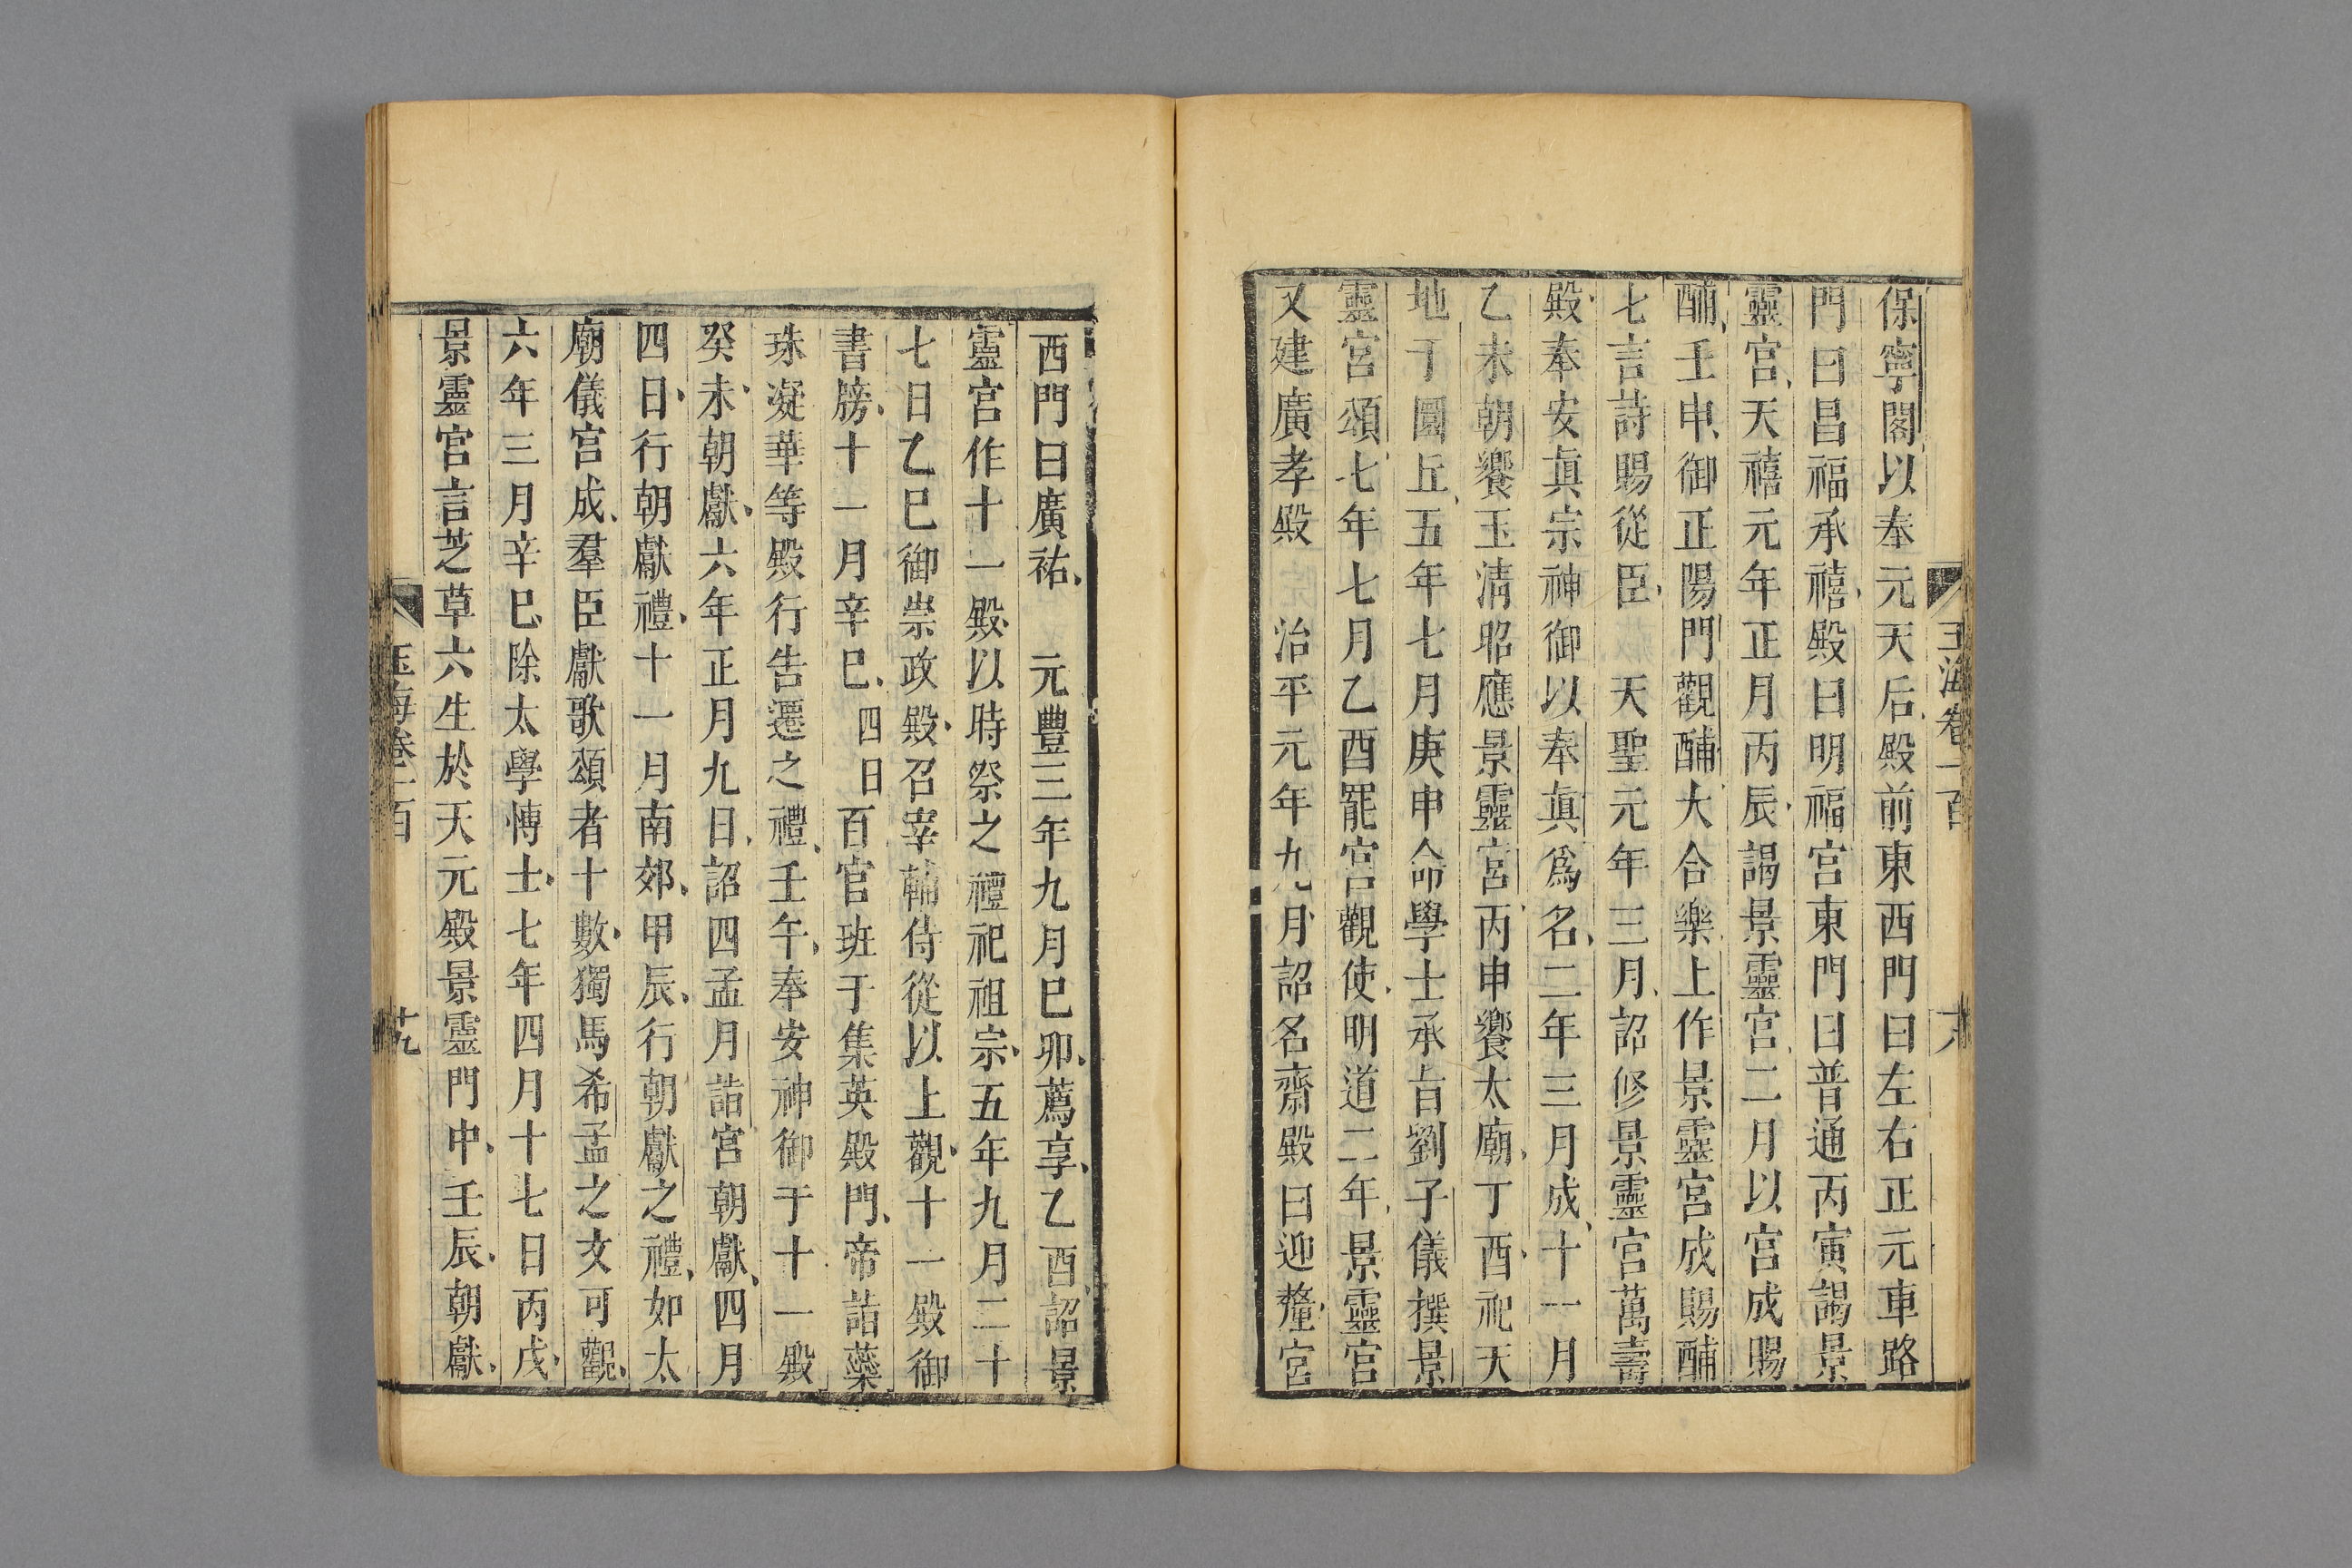 玉海卷一百
保寧閣以奉元天后殿前東西門曰左右正元車路
門曰昌福承禧殿曰明福宮東門曰普通丙寅謁景
靈宮天禧元年正月丙辰謁景靈宮二月以宮成賜
酺壬申御正陽門觀酺大合樂上作景靈宮成賜酺
七言詩賜從臣 天聖元年三月詔修景靈宮萬壽
殿奉安眞宗神御以奉眞爲名二年三月成十一月
乙未朝饗玉淸昭應景靈宮丙申饗太廟丁酉祀天
地于圜丘五年七月庚申命學士承旨劉子儀撰景
靈宮頌七年七月乙酉罷宮觀使明道二年景靈宮
又建廣孝殿 治平元年九月詔名齋殿曰迎釐宮
西門曰廣祐 元豐三年九月巳卯薦享乙酉詔景
靈宮作十一殿以時祭之禮祀祖宗五年九月二十
七日乙巳御崇政殿召宰輔侍從以上觀十一殿御
書牓十一月辛巳四日百官班于集英殿門帝詣蘂
珠凝華等殿行告遷之禮壬午奉安神御于十一殿
癸未朝獻六年正月九日詔四孟月詣宮朝獻四月
四日行朝獻禮十一月南郊甲辰行朝獻之禮如太
廟儀宮成羣臣獻歌頌者十數獨馬希孟之文可觀
六年三月辛巳除太學博士七年四月十七日丙戌
景靈宮言芝草六生於天元殿景靈門中壬辰朝獻
玉海卷一百